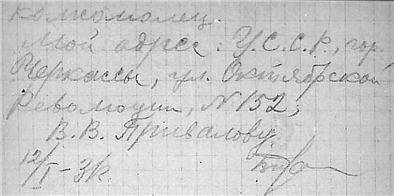 комсомолец.
Мой адрес: У.С.С.Р., гор.
Черкассы, ул. Октябрской
Революции, N 152,
В.В. Привалову
12/I-3